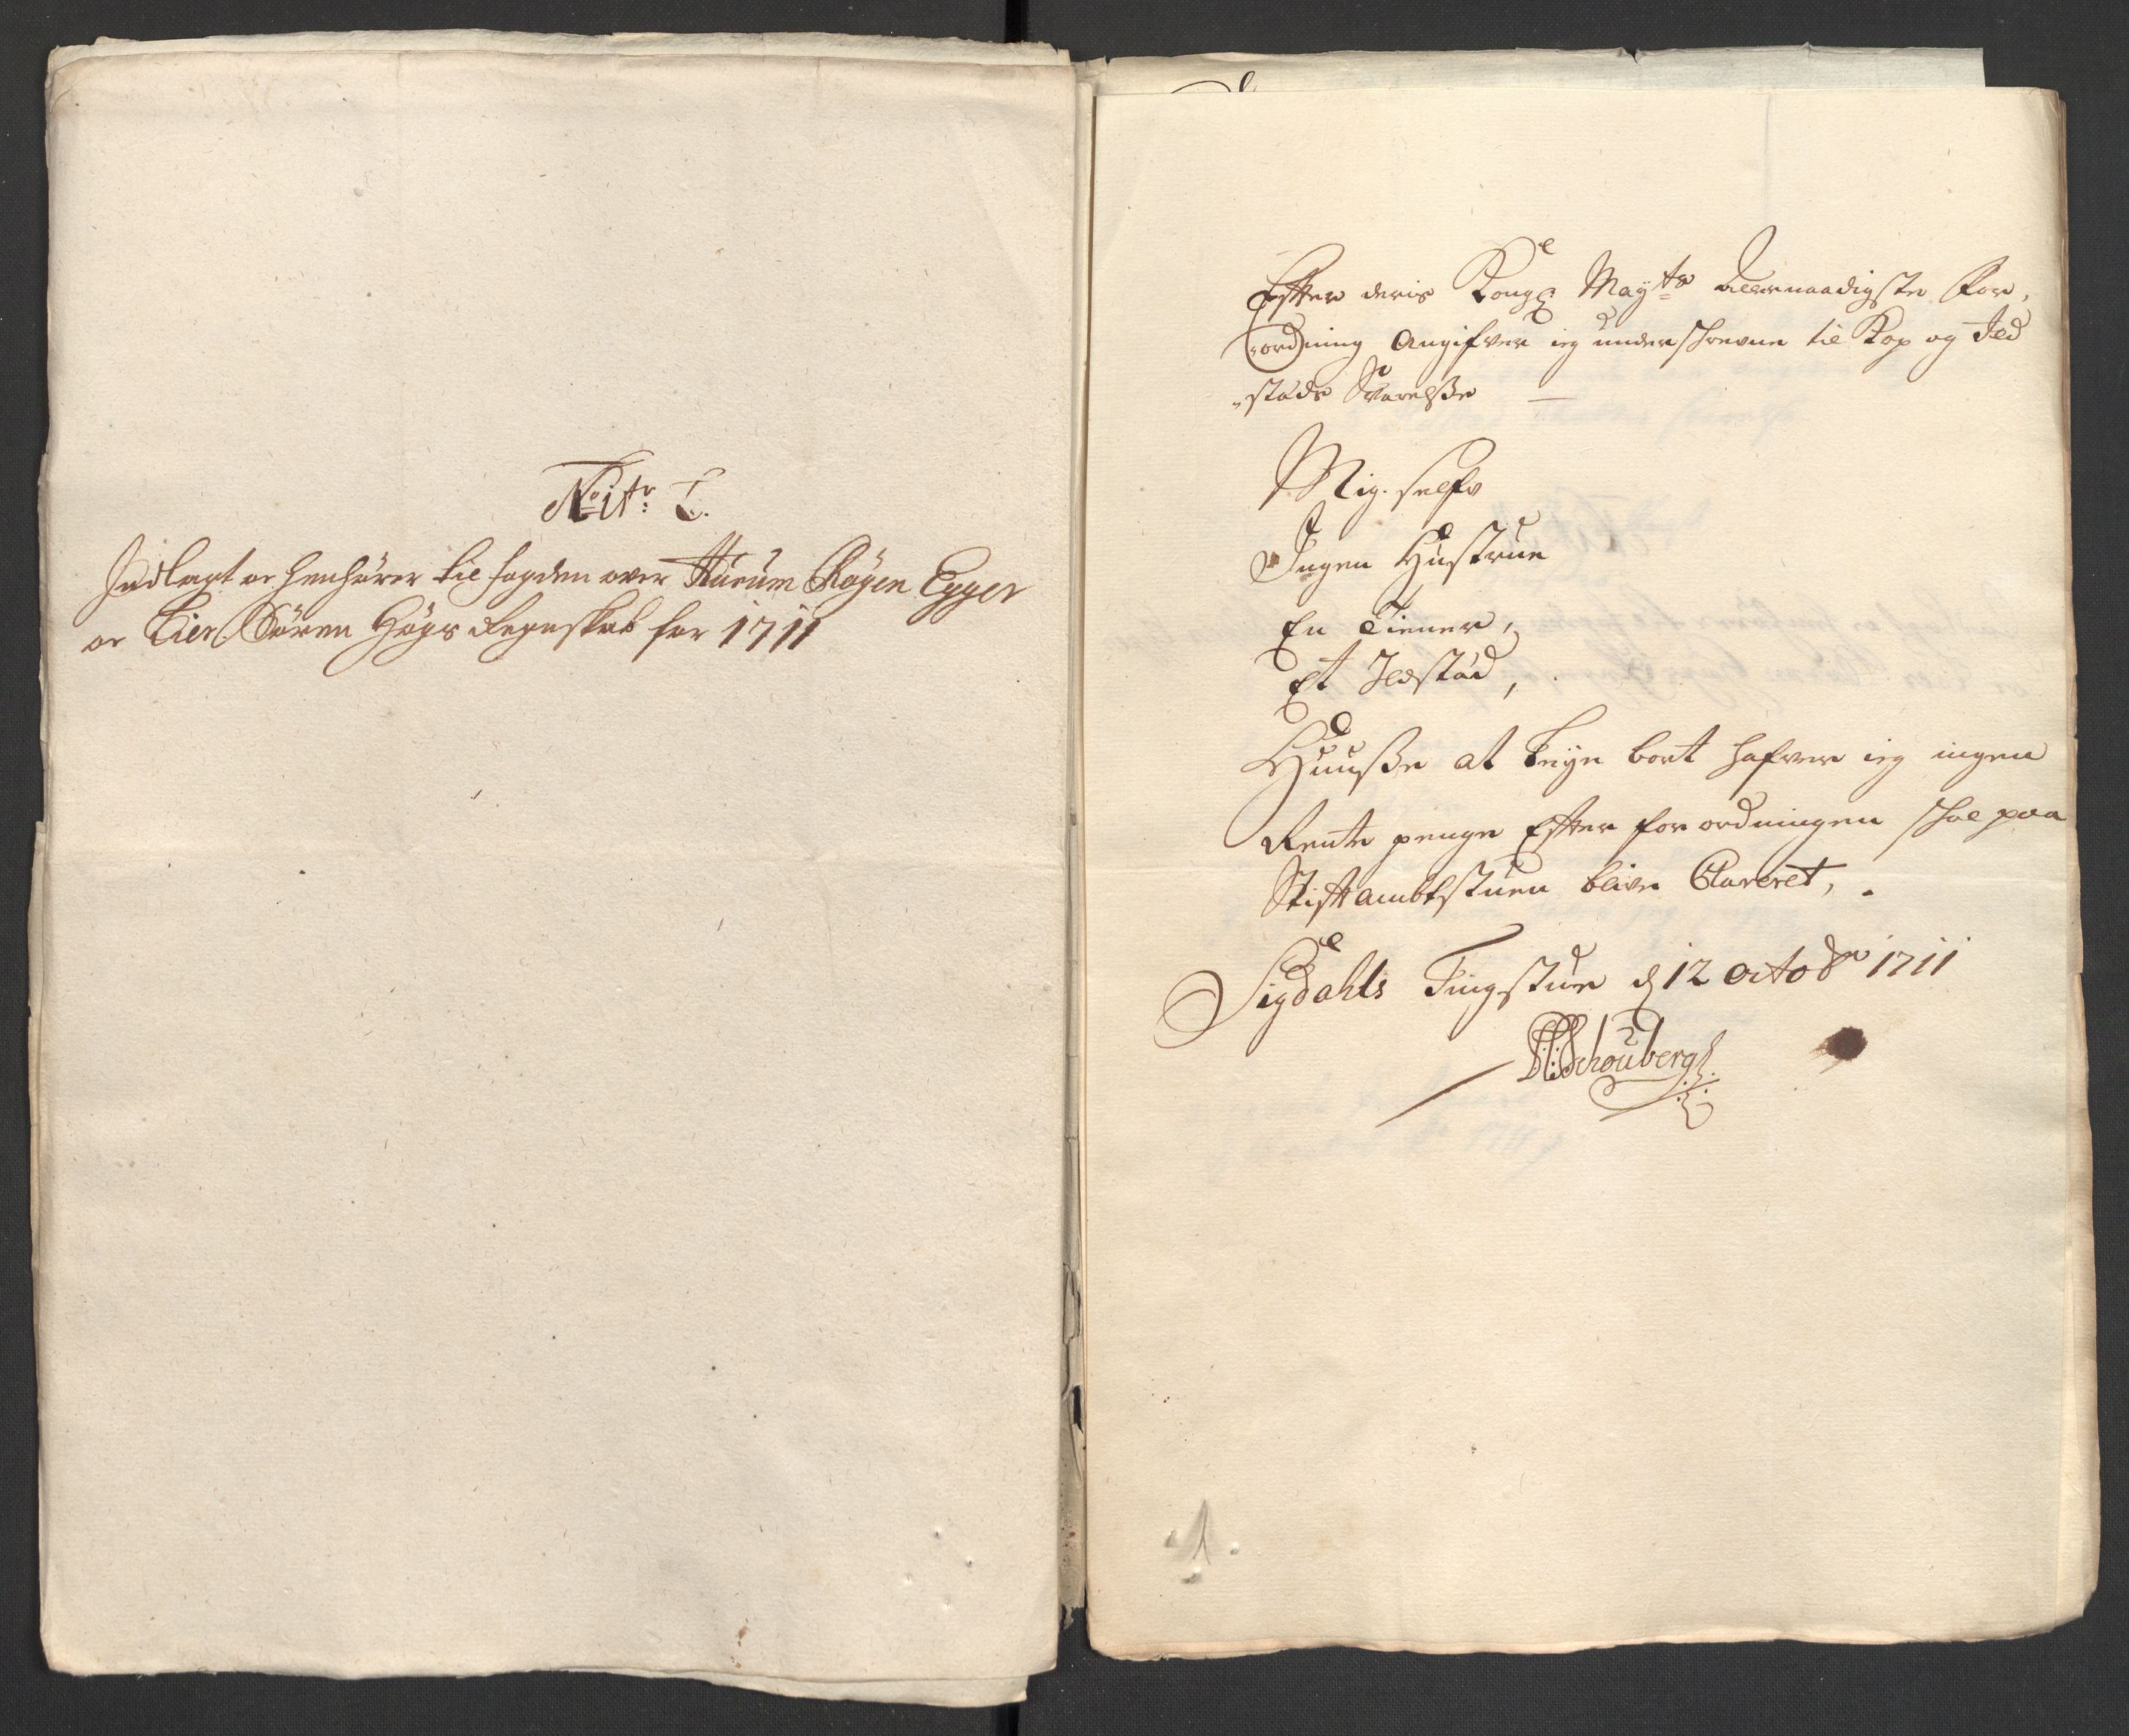 No itr: L.
Indlagt oc henhører til fogden over Hurum Røyen Egger
oc Lier Søren Høgs Regnskab for 1711
Efter deris Kongl Mayts allernaadigste For,
,ordning Angifver ieg underschrevne til Kop og Ild
,,stads Svarelsse
Mig selfv
Ingen Hustrue
En Tiener,
Et Ildstád,
Huusse at leye bort hafver ieg ingen
Rente penge Efter for ordningen schal paa
Stiftambtstuen blive Clareret,
Sigdahls Tingstue d 12 octobr 1711
Schoüberg